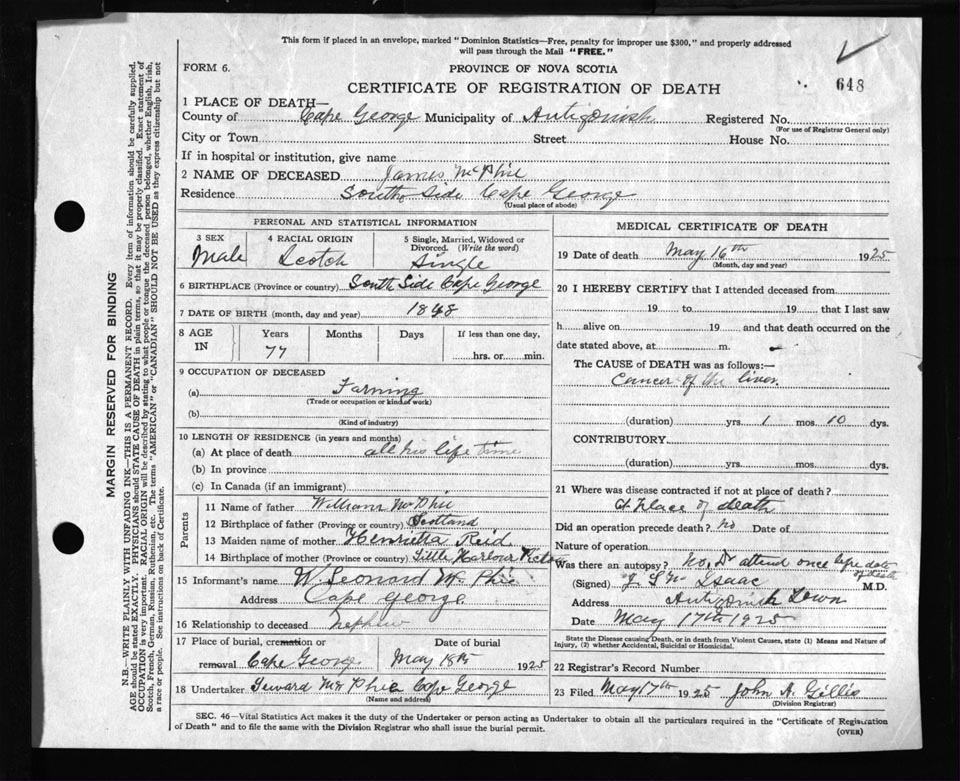 This form if placed in an envelope, marked "Dominion Statistics—Free, penalty for improper use $300," and properly addressed
will pass through the Mail "FREE."
FORM 6.
PROVINCE OF NOVA SCOTIA
648
CERTIFICATE OF REGISTRATION OF DEATH
1 PLACE OF DEATH—
County of Cape George Municipality of Antigonish Registered No.
(For use of Registrar General only)
City or Town Street House No.
If in hospital or institution, give name
2 NAME OF DECEASED James McPhie
Residence South Side Cape George
(Usual place of abode)
PERSONAL AND STATISTICAL INFORMATION
3 SEX
Male
4 RACIAL ORIGIN
Scotch
5 Single, Married, Widowed or
Divorced. (Write the word)
Single
6 BIRTHPLACE (Province or country) South Side Cape George
7 DATE OF BIRTH (month, day and year) 1848
8 AGE
IN
Years
77
Months
Days
If less than one day,
hrs. or min.
9 OCCUPATION OF DECEASED
(a) Farming
(Trade or occupation or kind of work)
(b)
(Kind of industry)
10 LENGTH OF RESIDENCE (in years and months)
(a) At place of death all his life time
(b) In province
(c) In Canada (if an immigrant)
Parents
11 Name of father William McPhie
12 Birthplace of father (Province or country) Scotland
13 Maiden name of mother Henrietta Reid
14 Birthplace of mother (Province or country) Little Harbour Pictou
15 Informant's name W. Leonard McPhie
Address Cape George
16 Relationship to deceased nephew
17 Place of burial, cremation or Date of burial
removal Cape George May 18th 1925
18 Undertaker Seward McPhie Cape George
(Name and address)
MEDICAL CERTIFICATE OF DEATH
19 Date of death May 16th 1925
(Month, day and year)
20 I HEREBY CERTIFY that I attended deceased from
19 to 19 that I last saw
h alive on 19 and that death occurred on the
date stated above, at m.
The CAUSE of DEATH was as follows:—
Cancer of the liver
(duration) yrs. 1 mos. 10 dys.
CONTRIBUTORY
(duration) yrs. mos. dys.
21 Where was disease contracted if not at place of death?
At Place of death
Did an operation precede death? No Date of
Nature of operation
Was there an autopsy? No, Dr attend once before date of death
(Signed) Isaac M.D.
Address Antigonish Town
Date May 17th 1925
State the Disease causing Death, or in death from Violent Causes, state (1) Means and Nature of
Injury, (2) whether Accidental, Suicidal or Homicidal.
22 Registrar's Record Number
23 Filed May 17th 1925 John A. Gillis
(Division Registrar)
SEC. 46—Vital Statistics Act makes it the duty of the Undertaker or person acting as Undertaker to obtain all the particulars required in the "Certificate of Registration
of Death" and to file the same with the Division Registrar who shall issue the burial permit.
(OVER)
MARGIN RESERVED FOR BINDING
N.B.—WRITE PLAINLY WITH UNFADING INK—THIS IS A PERMANENT RECORD. Every item of information should be carefully supplied.
AGE should be stated EXACTLY. PHYSICIANS should STATE CAUSE OF DEATH in plain terms, so that it may be properly classified. Exact statement of
OCCUPATION is very important. RACIAL ORIGIN will be described by stating to what people or tongue the deceased person belonged, whether English, Irish,
Scotch, French, German, Russian, Ruthenian, etc. The terms "AMERICAN" or "CANADIAN" SHOULD NOT BE USED as they express citizenship but not
a race or people. See instructions on back of Certificate.